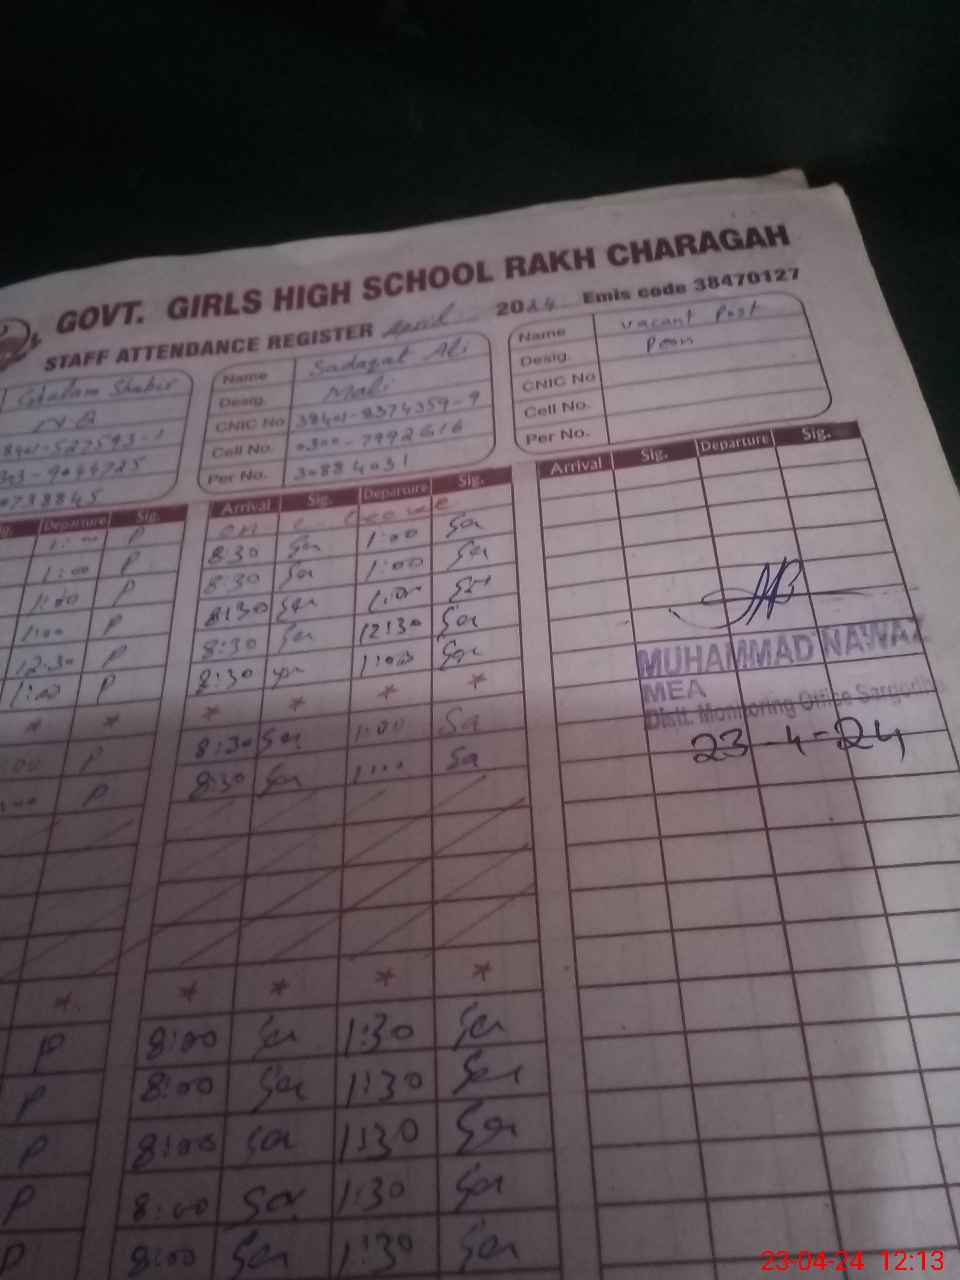 GOVT. GIRLS HIGH SCHOOL RAKH CHARAGAH
STAFF ATTENDANCE REGISTER April 2024 Emis code 38470127
Ghulam Shabir
N.Q
0738845
Name Sadaqat Ali
Desig. Mali
CNIC No 38401-8374359-9
Cell No. 0300-7992616
Per No. 30884031
Name vacant Post
Desig. Peon
CNIC No
Cell No.
Per No.
Departure Sig.
Arrival Sig. Departure Sig.
Arrival Sig. Departure Sig.
1:00 P
1:00 P 8:30 Sa 1:00 Sa
1:00 P 8:30 Sa 1:00 Sa
1:00 P 8:30 Sa 1:00 Sa
12:30 P 8:30 Sa 12:30 Sa
1:00 P 8:30 Sa 1:00 Sa
* * * * * *
P 8:30 Sa 1:00 Sa
P 8:30 Sa 1:00 Sa
* * * * *
P 8:00 Sa 1:30 Sa
P 8:00 Sa 1:30 Sa
P 8:00 Sa 1:30 Sa
P 8:00 Sa 1:30 Sa
P 8:00 Sa 1:30 Sa
MUHAMMAD NAWAZ
MEA
Distt. Monitoring Office Sargodha
23-4-24
23-04-24 12:13